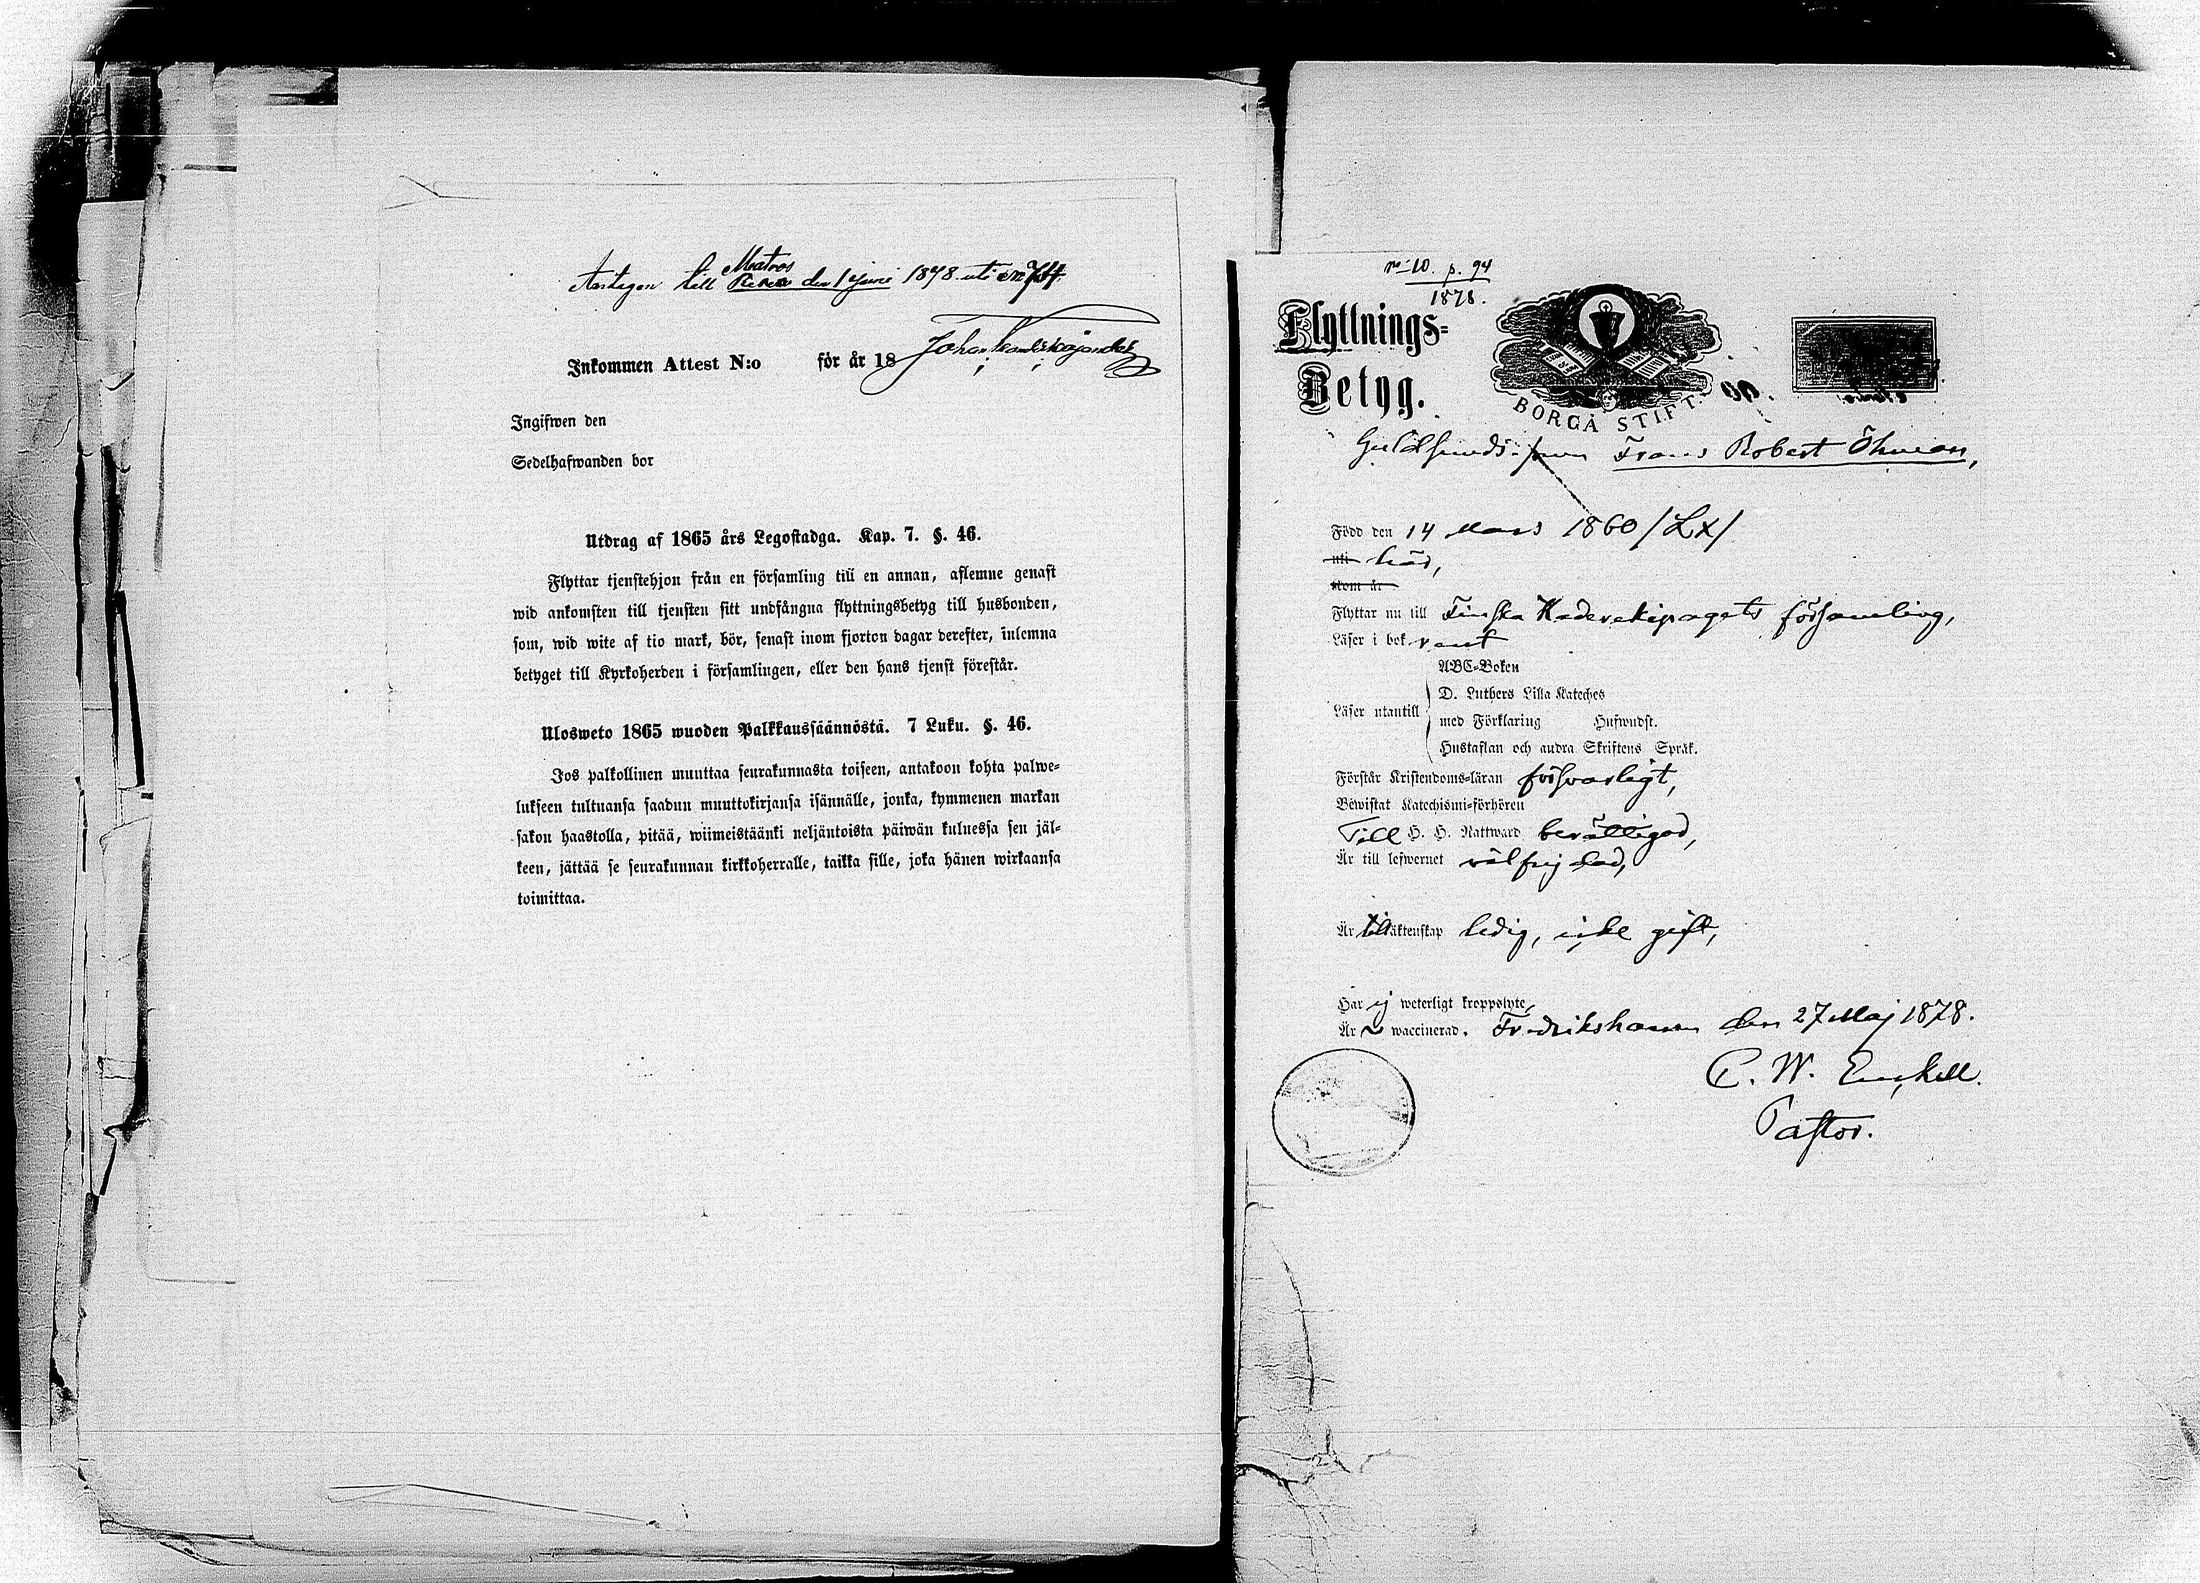 Antagen till Matros den 1 Juni 1878 uti
Inkommen Attest N:o för år 18
Johan
Ingifwen den
Sedelhafwanden bor
Utdrag af 1865 års Legostadga. Kap. 7. §. 46.
Flyttar tjenstehjon från en församling till en annan, aflemne genast
wid ankomsten till tjensten sitt undfångna flyttningsbetyg till husbonden,
som, wid wite af tio mark, bör, senast inom fjorton dagar derefter, inlemna
betyget till Kyrkoherden i församlingen, eller den hans tjenst förestår.
Ulosweto 1865 wuoden Palkkaussäännöstä. 7 Luku. §. 46.
Jos palkollinen muuttaa seurakunnasta toiseen, antakoon kohta palwe-
lukseen tultuansa saadun muuttokirjansa isännälle, jonka, kymmenen markan
sakon haastolla, pitää, wiimeistäänki neljäntoista päiwän kuluessa sen jäl-
keen, jättää se seurakunnan kirkkoherralle, taikka sille, joka hänen wirkaansa
toimittaa.
No 10. p. 94
1878.
Flyttnings-
Betyg.
BORGÅ STIFT.
Guldsmeds-sonen Frans Robert Öhman,
Född den 14 Mars 1860 /Lx/
uti här,
kom år
Flyttar nu till Finska Kaderekipagets församling,
Läser i bok rent
ABC-Boken
Läser utantill
D. Luthers Lilla Kateches
med Förklaring Huswudst.
Hustaflan och andra Skriftens Språk.
Förstår Kristendoms-läran försvarligt,
Bewistat Katechismi-förhören
Till H. H. Nattward berättigad,
Är till lefwernet välfrejdad,
Är till äktenskap ledig, icke gift,
Har ej weterligt kroppslyte,
Är waccinerad. Fredrikshamn den 27 Maj 1878.
C. W. Enckell.
Pastor.